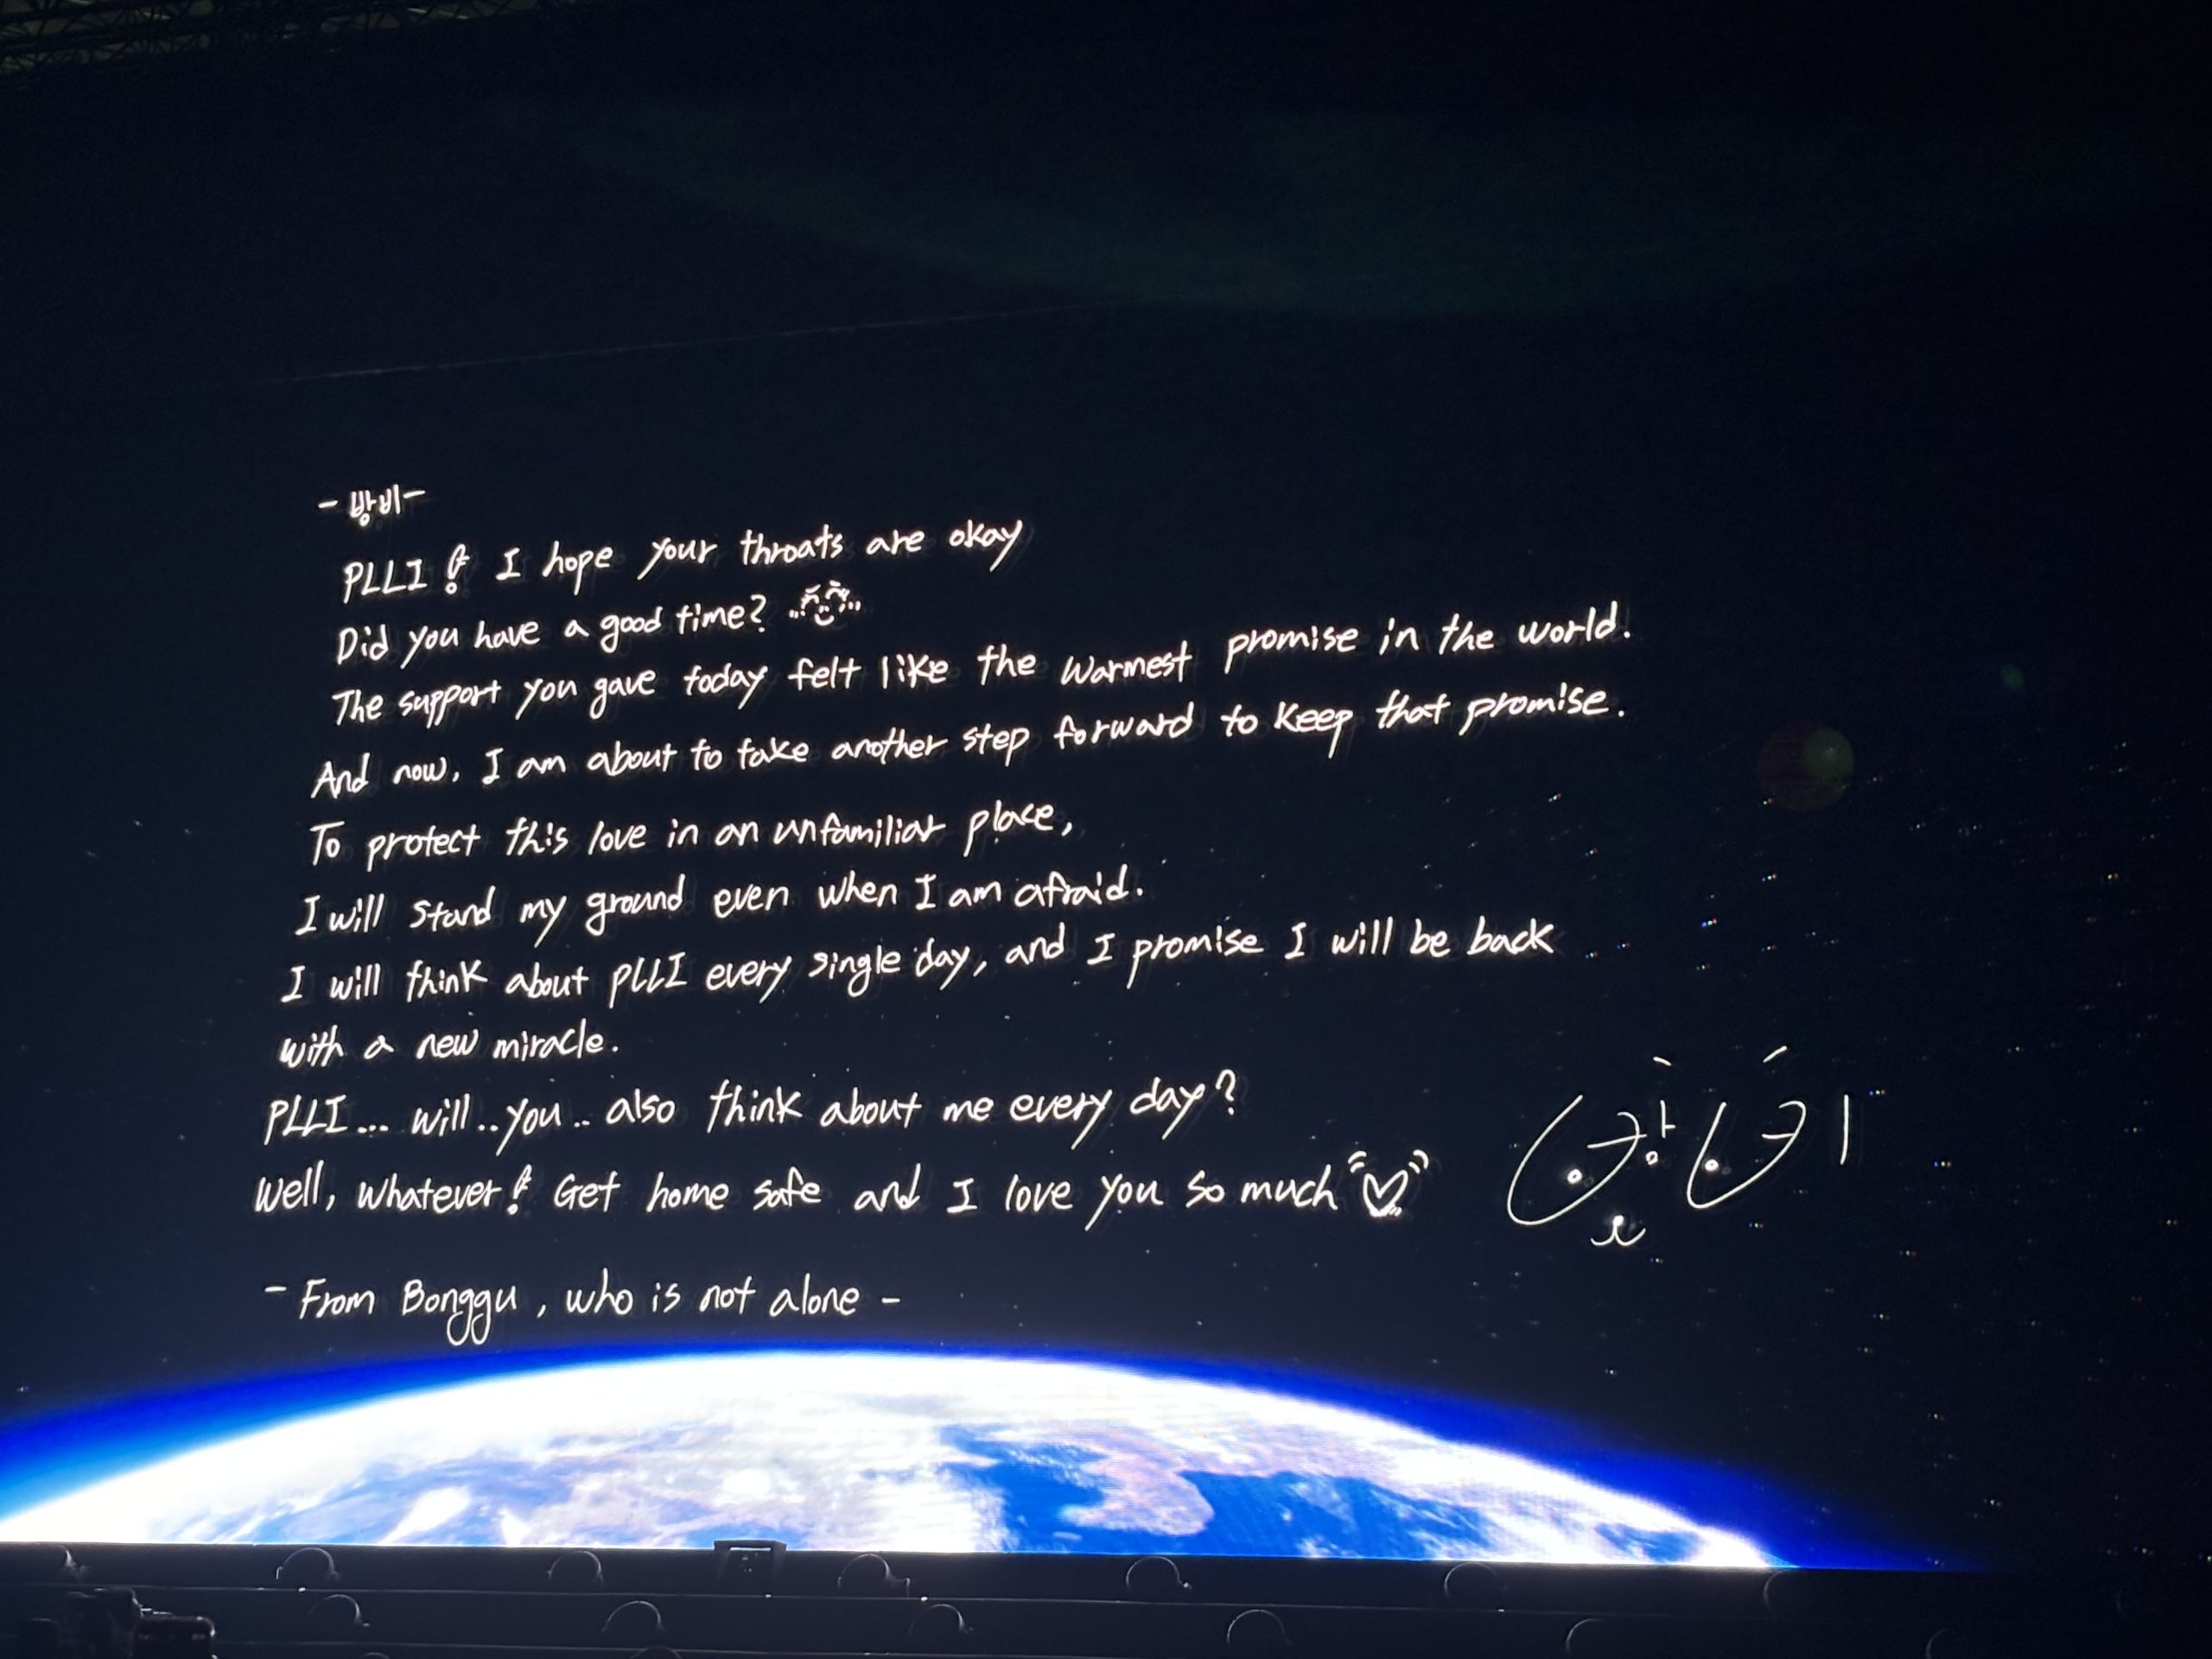 - 밤비 -
PLLI! I hope your throats are okay
Did you have a good time?
The support you gave today felt like the warmest promise in the world.
And now, I am about to take another step forward to keep that promise.
To protect this love in an unfamiliar place,
I will stand my ground even when I am afraid.
I will think about PLLI every single day, and I promise I will be back
with a new miracle.
PLLI... will..you.. also think about me every day?
Well, whatever! Get home safe and I love you so much
- From Bonggu, who is not alone -